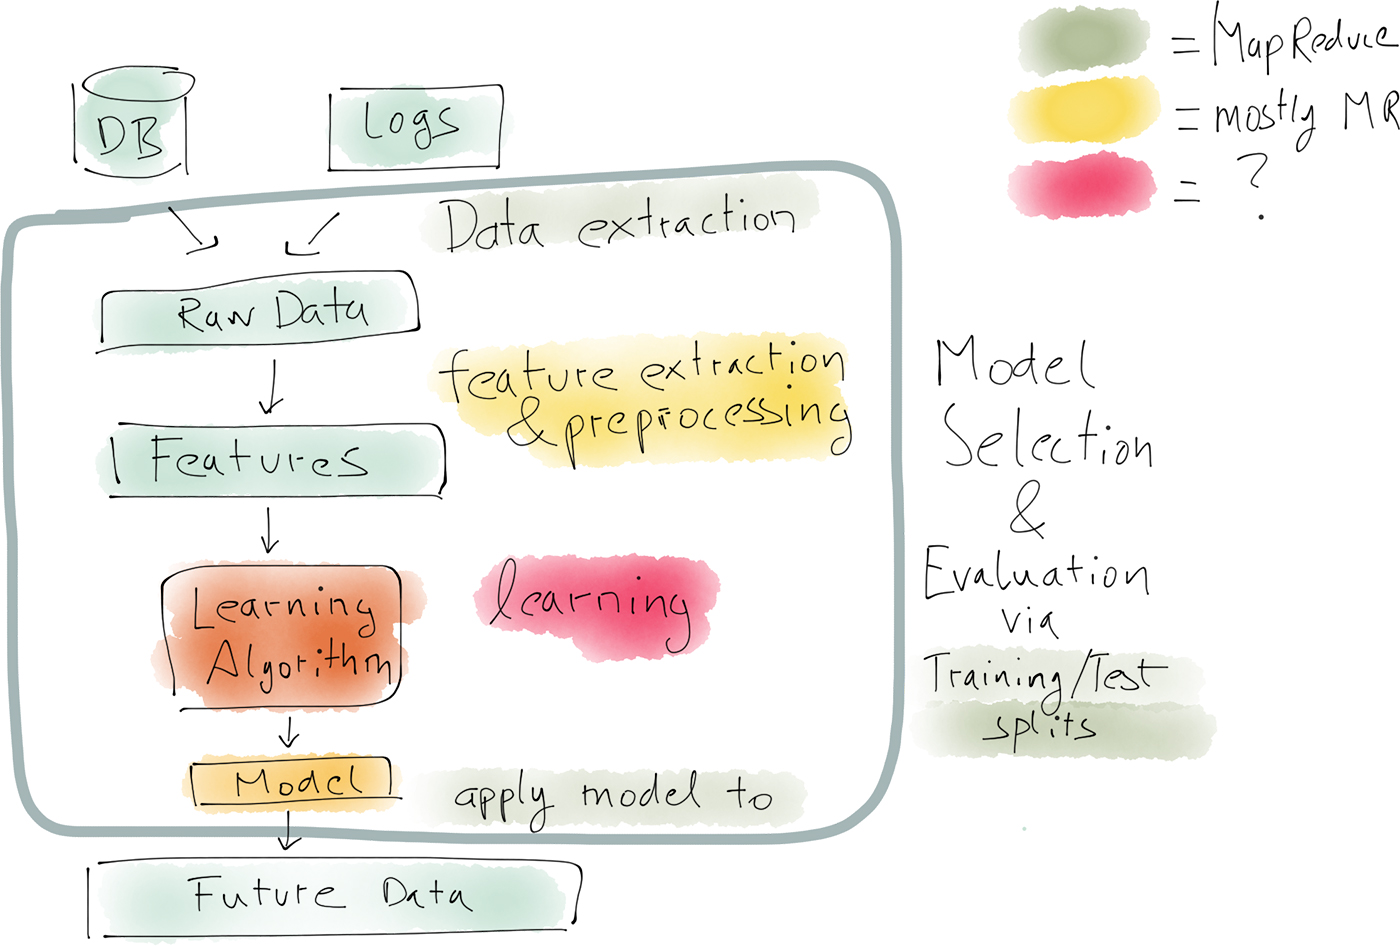 = MapReduce
= mostly MR
= ?
DB
Logs
Data extraction
Raw Data
feature extraction
& preprocessing
Features
Learning
Algorithm
learning
Model
apply model to
Future Data
Model
Selection
&
Evaluation
via
Training/Test
splits